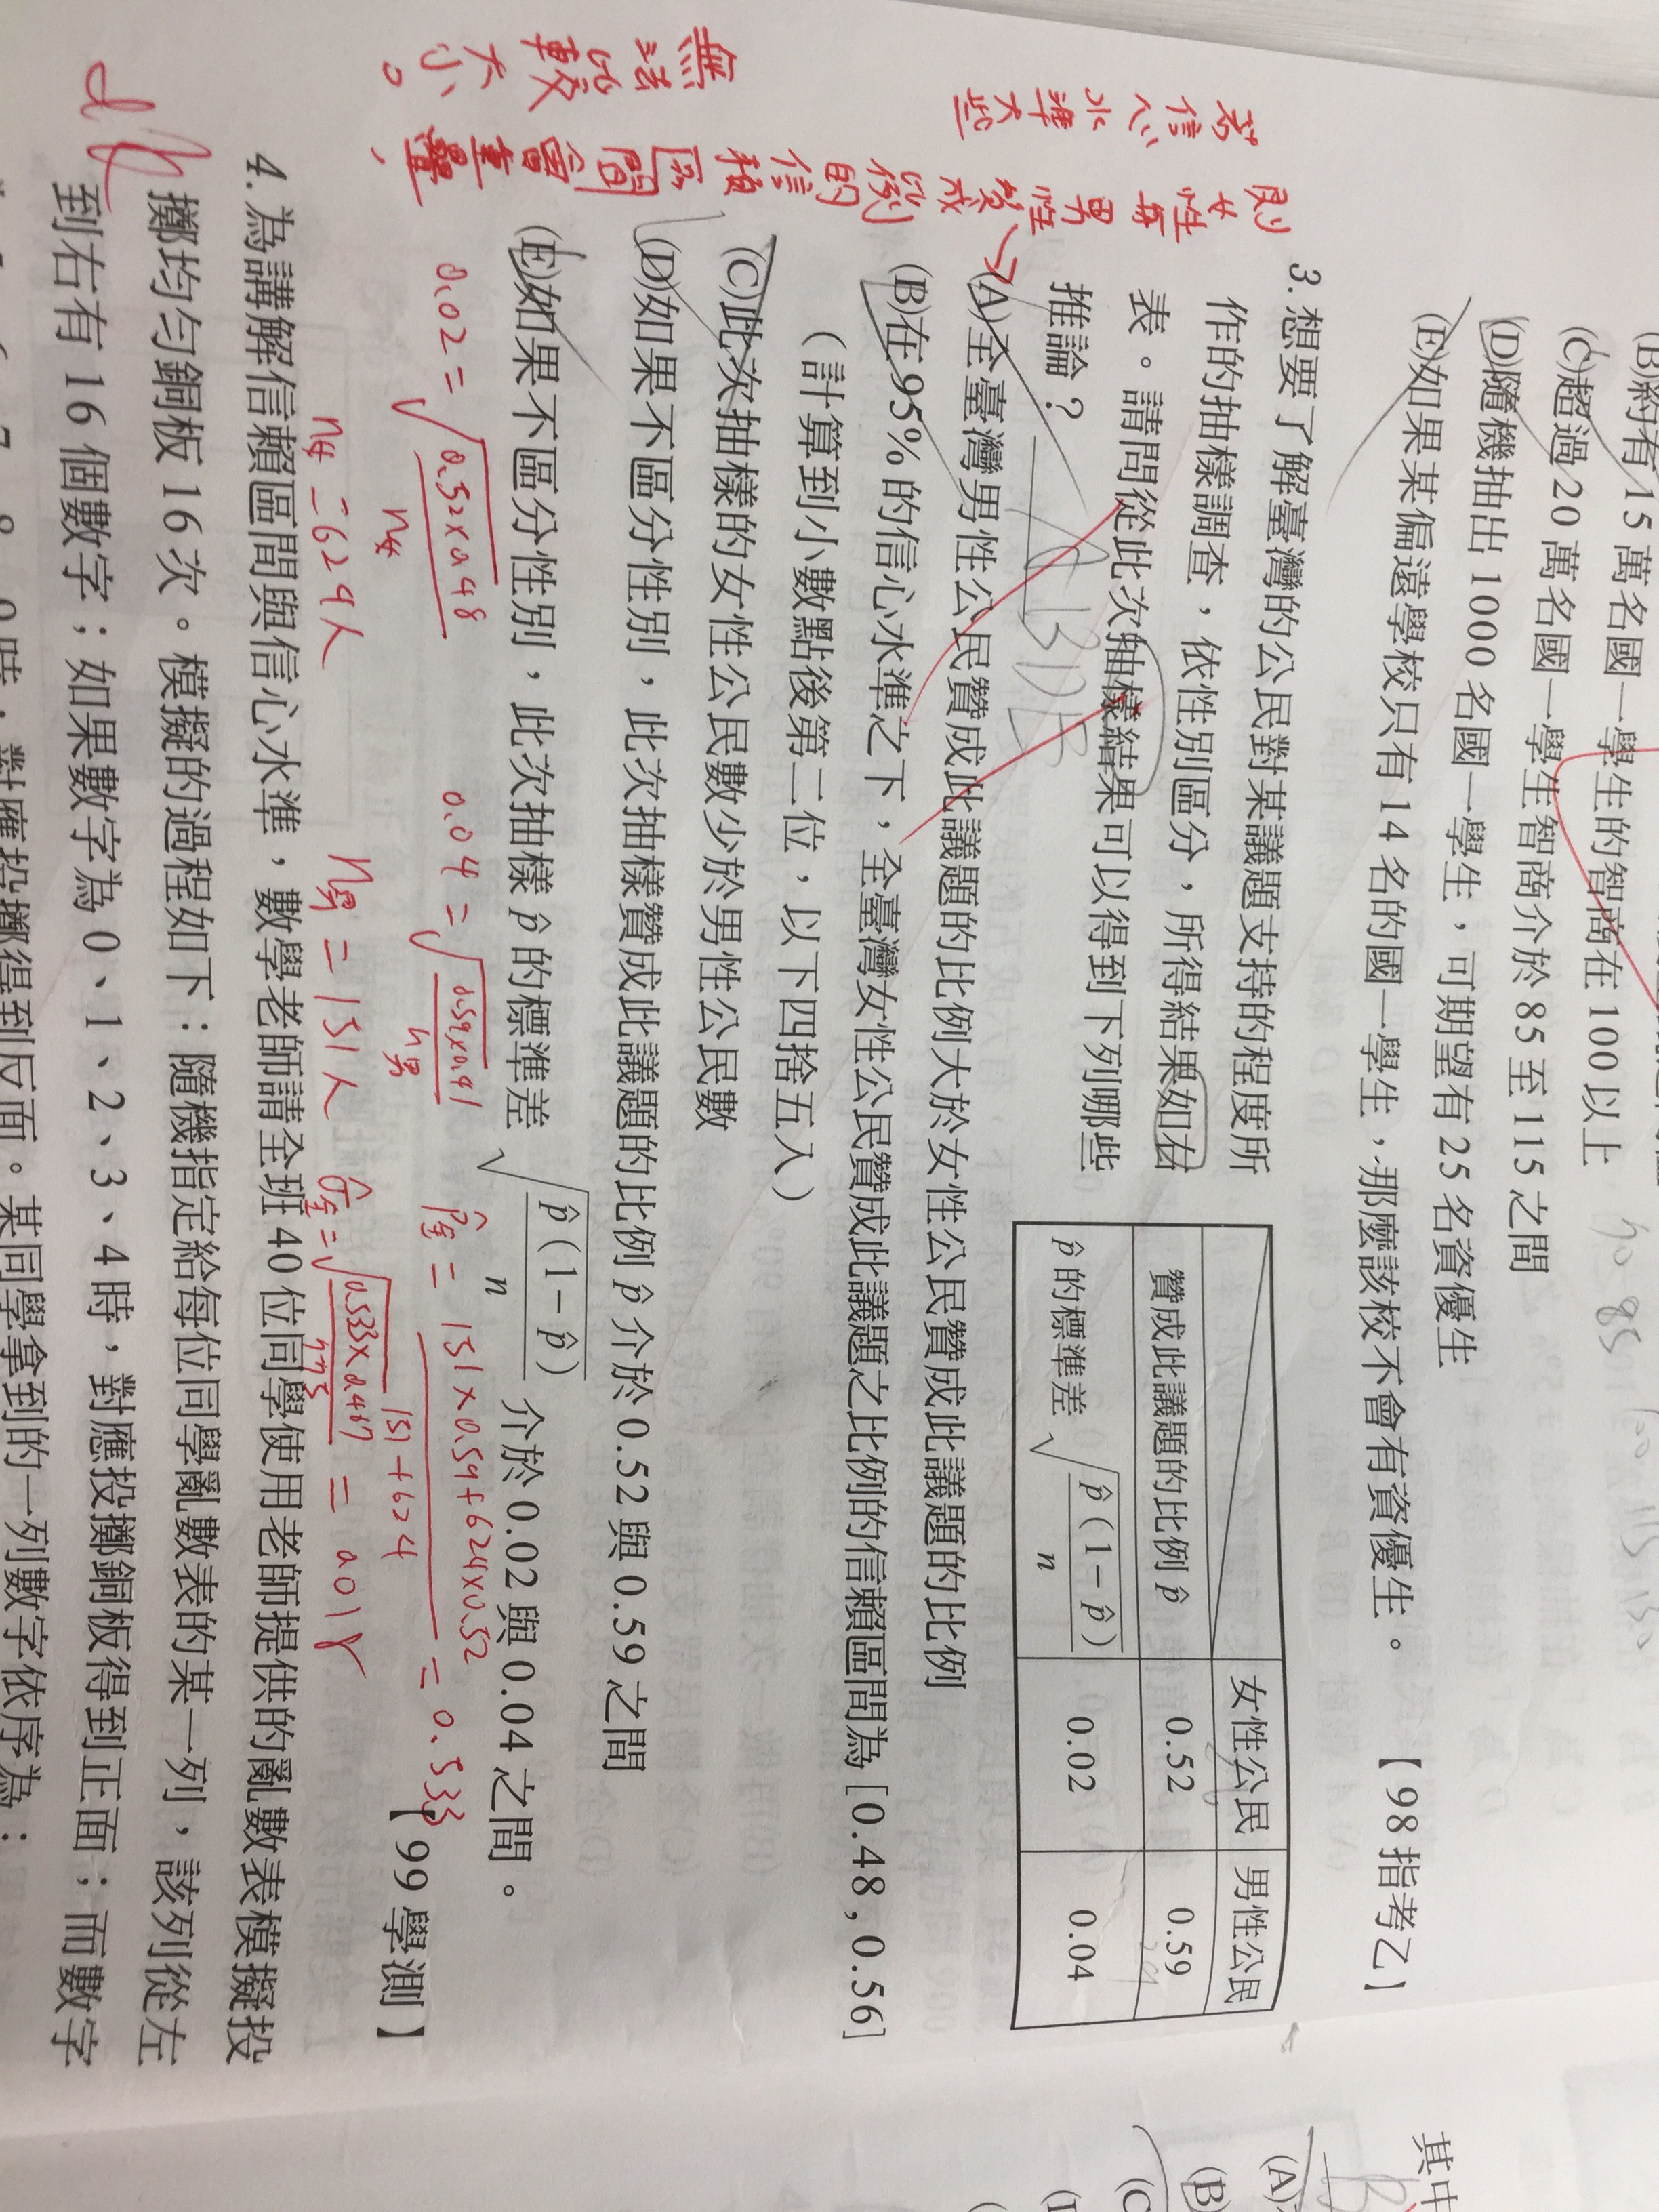 (B)約有 15 萬名國一學生的智商在 100 以上
(C)超過 20 萬名國一學生智商介於 85 至 115 之間
(D)隨機抽出 1000 名國一學生，可期望有 25 名資優生
(E)如果某偏遠學校只有 14 名的國一學生，那麼該校不會有資優生。
【98 指考乙】
70 85 100 115 130
3. 想要了解臺灣的公民對某議題支持的程度所
作的抽樣調查，依性別區分，所得結果如右
表。請問從此次抽樣結果可以得到下列哪些
推論？
女性公民 男性公民
贊成此議題的比例 p̂ 0.52 0.59
p̂ 的標準差 √(p̂(1−p̂)/n) 0.02 0.04
(A)全臺灣男性公民贊成此議題的比例大於女性公民贊成此議題的比例
(B)在 95% 的信心水準之下，全臺灣女性公民贊成此議題之比例的信賴區間為 [0.48 , 0.56]
（計算到小數點後第二位，以下四捨五入）
(C)此次抽樣的女性公民數少於男性公民數
(D)如果不區分性別，此次抽樣贊成此議題的比例 p̂ 介於 0.52 與 0.59 之間
(E)如果不區分性別，此次抽樣 p̂ 的標準差 √(p̂(1−p̂)/n) 介於 0.02 與 0.04 之間。
【99 學測】
若信心水準大些
則女性與男性贊成
比例的信賴區間會重疊，
無法比較大小。
0.02 = √(0.52×0.48/n女)
n女 = 624人
0.04 = √(0.59×0.41/n男)
n男 = 151人
p̂全 = (151×0.59+624×0.52)/(151+624) = 0.533
σ̂全 = √(0.533×0.467/775) = 0.018
4. 為講解信賴區間與信心水準，數學老師請全班 40 位同學使用老師提供的亂數表模擬投
擲均勻銅板 16 次。模擬的過程如下：隨機指定給每位同學亂數表的某一列，該列從左
到右有 16 個數字；如果數字為 0、1、2、3、4 時，對應投擲銅板得到正面；而數字
9 時，對應投擲得到反面。某同學拿到的一列數字依序為：
其中
(A)
(B)
(C)